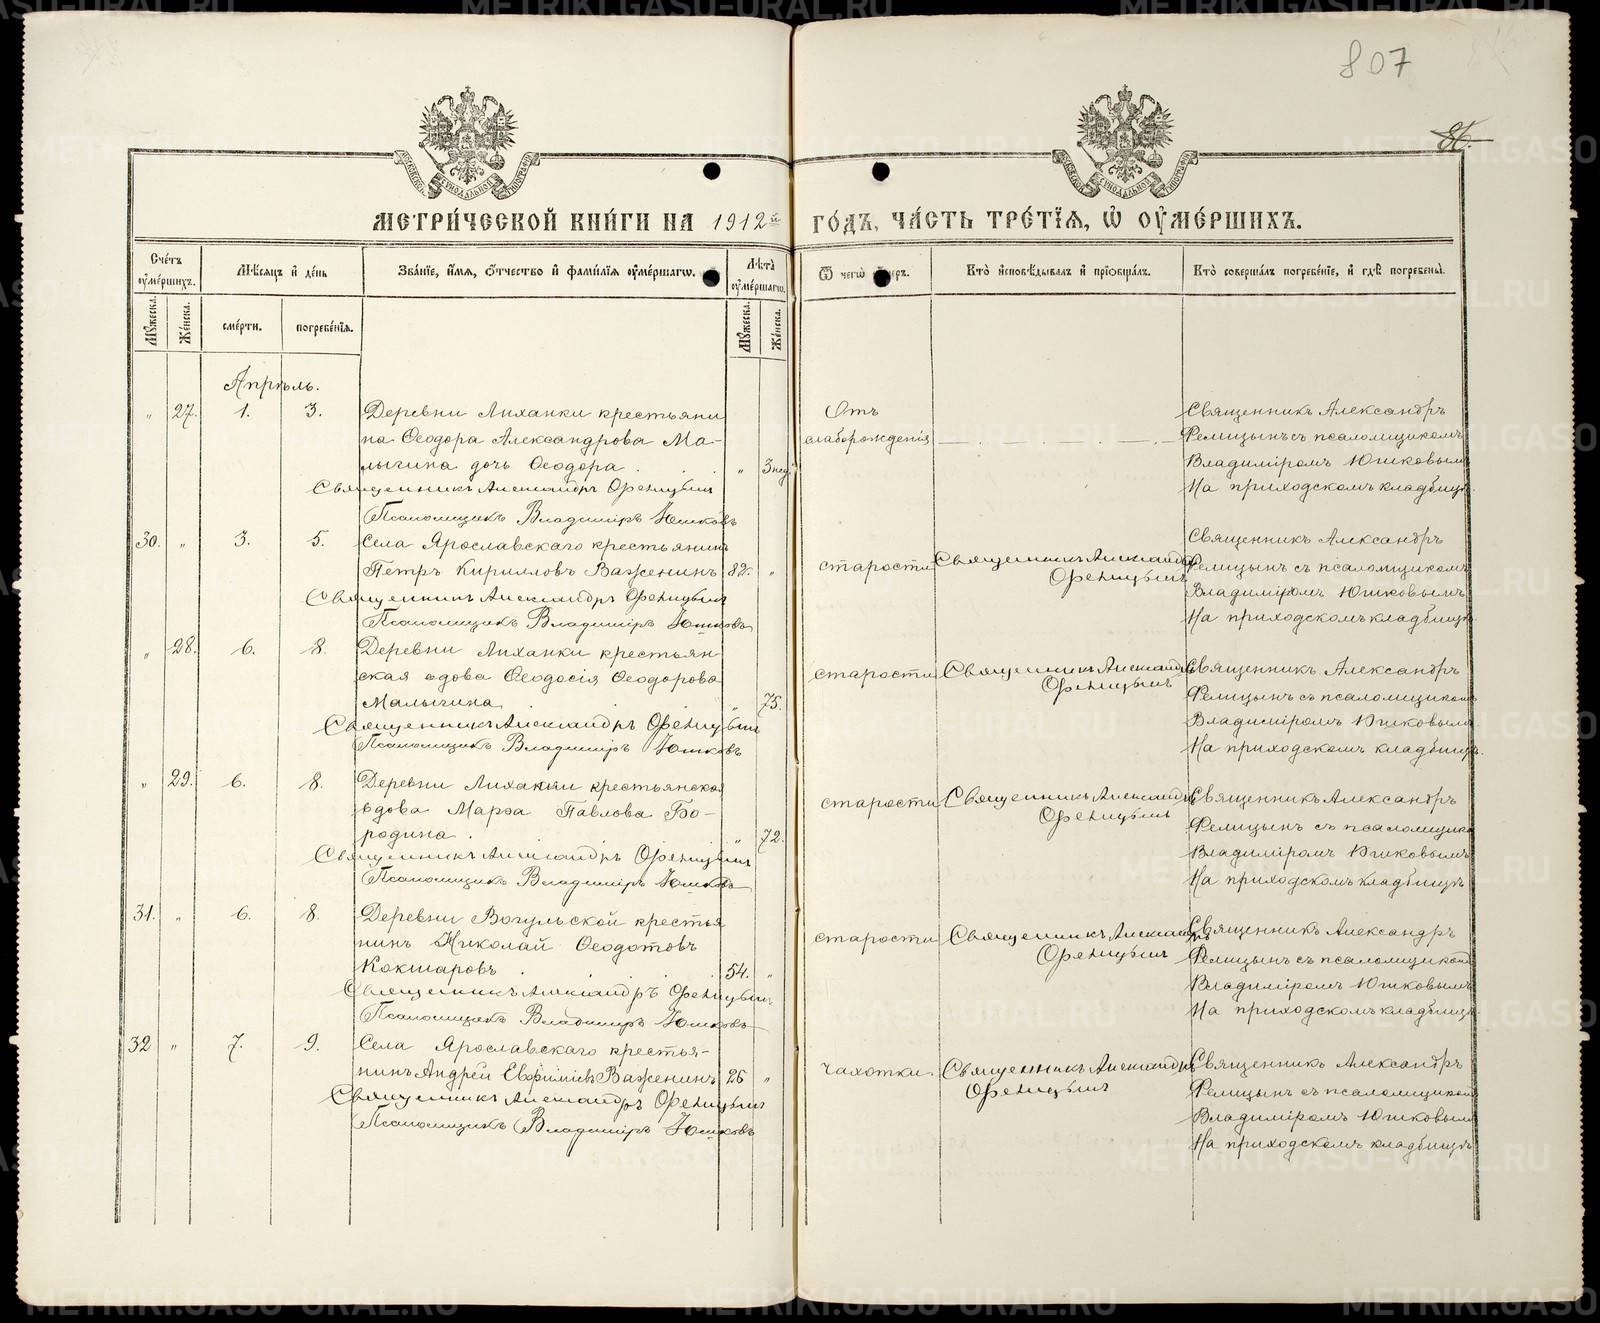 807
86.
МЕТРИ́ЧЕСКОЙ КНИ́ГИ НА 1912й ГО́ДЪ, ЧА́СТЬ ТРЕ́ТІѦ, Ѡ҆ ОУ҆МЕ́РШИХЪ.
Сче́тъ оу҆ме́ршихъ.
Мѣ́сѧцъ и҆ де́нь
Зва́нїе, и҆́мѧ, ѻ҆́тчество и҆ фами́лїѧ оу҆ме́ршагѡ.
Лѣ́та оу҆ме́ршагѡ.
Ѿ чегѡ̀ оу҆́меръ.
Кто̀ и҆сповѣ́дывалъ и҆ прїѡбща́лъ.
Кто̀ соверша́лъ погребе́нїе, и҆ гдѣ̀ погребены̀.
Мꙋ́жеска.
Же́нска.
сме́рти.
погребе́нїѧ.
Мꙋ́жеска.
Же́нска.
Апрѣль.
„ 27. 1. 3. Деревни Лиханки крестьяни
на Ѳеодора Александрова Ма-
лыгина дочь Ѳеодора . . . „ 3 нед.
Священникъ Александръ Фелицынъ
Псаломщикъ Владиміръ Юшковъ
Отъ
слаборожденія
Священникъ Александръ
Фелицынъ съ псаломщикомъ
Владиміромъ Юшковымъ
На приходскомъ кладбищѣ.
30. „ 3. 5. Села Ярославскаго крестьянинъ
Петръ Кирилловъ Важенинъ 82. „
Священникъ Александръ Фелицынъ
Псаломщикъ Владиміръ Юшковъ
старости
Священникъ Александръ
Фелицынъ
Священникъ Александръ
Фелицынъ съ псаломщикомъ
Владиміромъ Юшковымъ
На приходскомъ кладбищѣ.
„ 28. 6. 8. Деревни Лиханки крестьян-
ская вдова Ѳеодосія Ѳеодорова
Малыгина . . „ 75.
Священникъ Александръ Фелицынъ
Псаломщикъ Владиміръ Юшковъ
старости
Священникъ Александръ
Фелицынъ
Священникъ Александръ
Фелицынъ съ псаломщикомъ
Владиміромъ Юшковымъ
На приходскомъ кладбищѣ.
„ 29. 6. 8. Деревни Лиханки крестьянская
вдова Марѳа Павлова Бо-
родина . „ 72.
Священникъ Александръ Фелицынъ
Псаломщикъ Владиміръ Юшковъ
старости
Священникъ Александръ
Фелицынъ
Священникъ Александръ
Фелицынъ съ псаломщикомъ
Владиміромъ Юшковымъ
На приходскомъ кладбищѣ
31. „ 6. 8. Деревни Вогульской крестья
нинъ Николай Ѳеодотовъ
Кокшаровъ . . . . 54. „
Священникъ Александръ Фелицынъ
Псаломщикъ Владиміръ Юшковъ
старости
Священникъ Александръ
Фелицынъ
Священникъ Александръ
Фелицынъ съ псаломщикомъ
Владиміромъ Юшковымъ
На приходскомъ кладбищѣ.
32 „ 7. 9. Села Ярославскаго крестья-
нинъ Андрей Евфиміевъ Важенинъ 26 „
Священникъ Александръ Фелицынъ
Псаломщикъ Владиміръ Юшковъ
чахотки.
Священникъ Александръ
Фелицынъ
Священникъ Александръ
Фелицынъ съ псаломщикомъ
Владиміромъ Юшковымъ
На приходскомъ кладбищѣ
METRIKI.GASO-URAL.RU